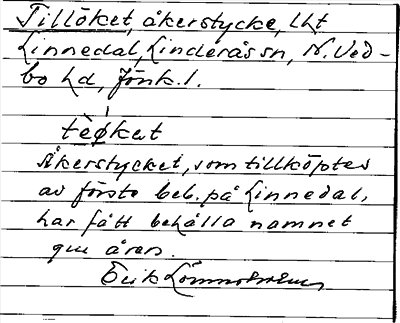 Tillöket, åkerstycke, Lht
Linnedal, Linderås sn, N. Ved-
bo hd, Jönk. l.
tèøket
Åkerstycket, som tillköptes
av förste beb. på Linnedal,
har fått behålla namnet
gm åren.
Erik